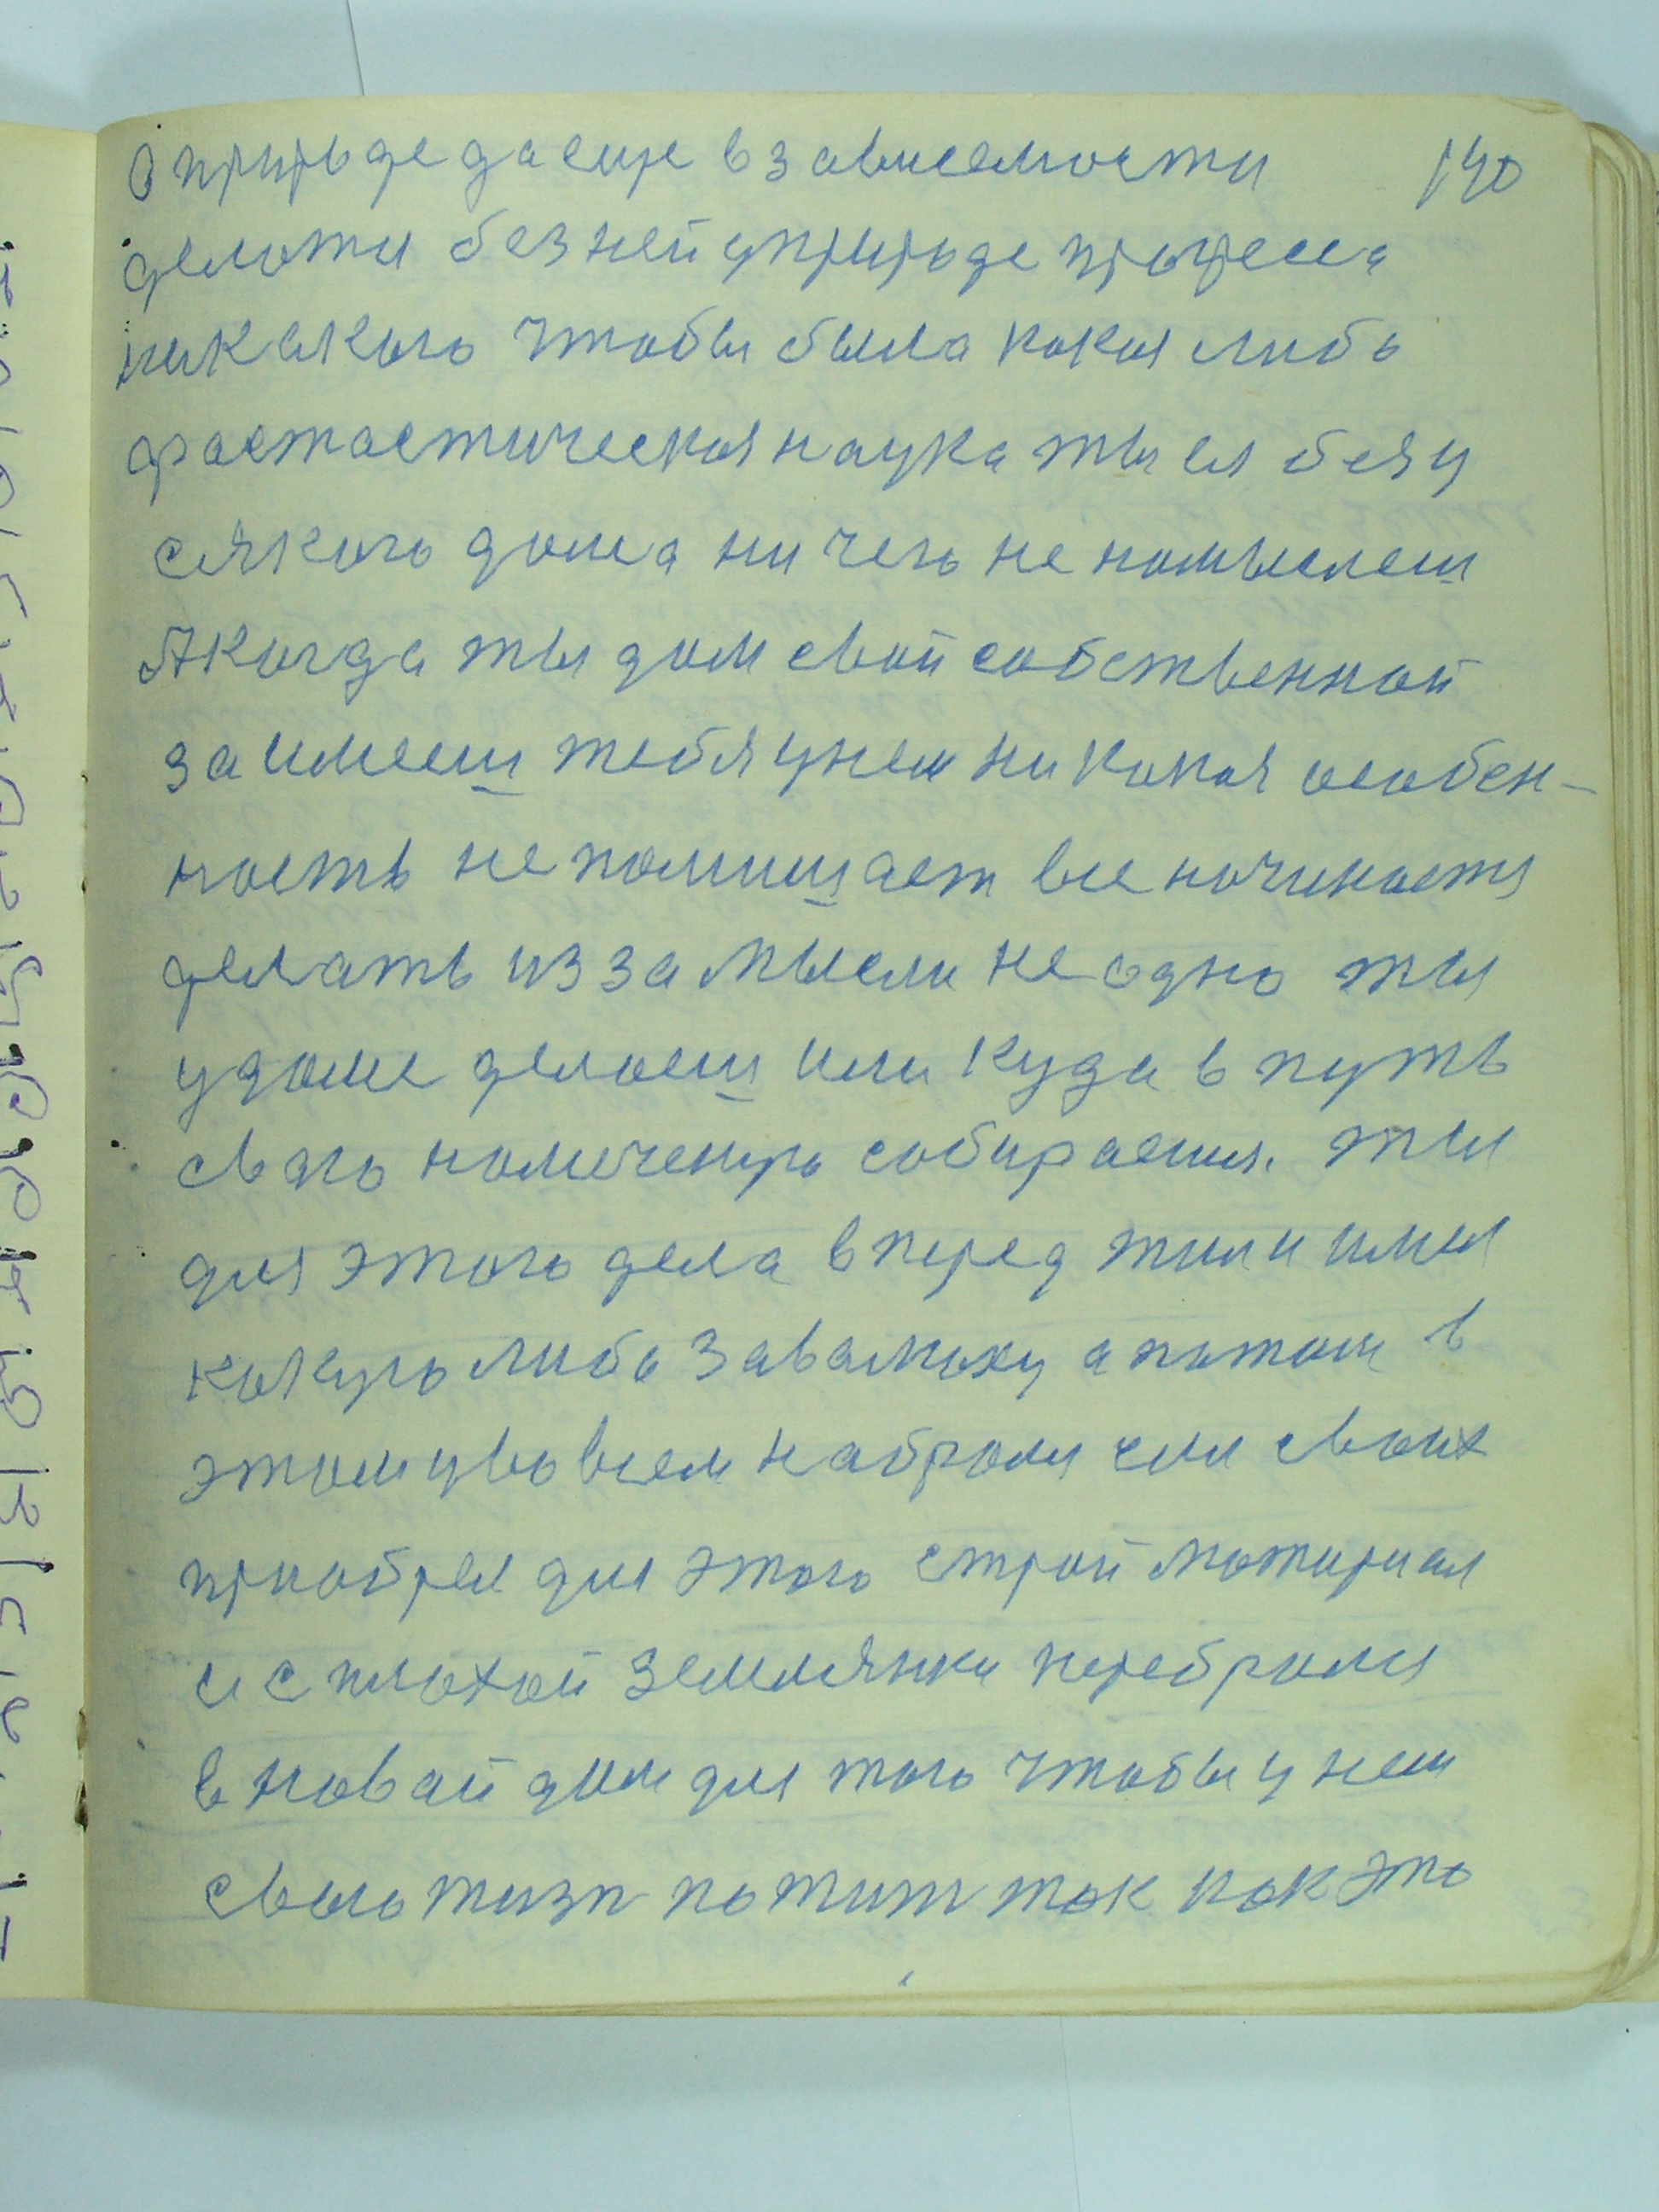 О природе да еще в зависемости 140
деломи без ней уприроде процесса
никакого чтобы была какая либо
фастастическая наука ты ея безу
сякого дома ни чего не помыслеш
А когда ты дом свой собственной
заимееш тебя унем ни какая особен-
ность не помишает все начинается
делать из за мысли не одно ты
удоме делаеш или куда в путь
свою намеченую собираешся. ты
для этого дела вперед жил и имел
какую либо завалюху а потом в
этом уво всем набрался сил своих
приобрел для этого строй матириал
и с плохой землянки перебрался
в новай дом для того чтобы у нем
свою жизн пожит так как это